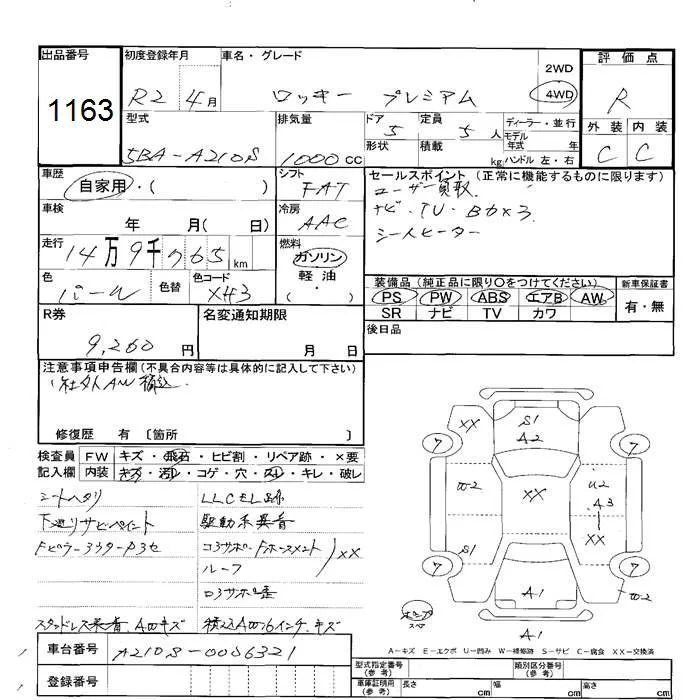 出品番号
1163
初度登録年月
R2 4月
車名・グレード
ロッキー プレミアム
2WD
4WD
評価点
R
外装 内装
C C
型式
5BA-A210S
排気量
1000cc
ドア 5
形状
定員 5人
積載 kg
ディーラー・並行
モデル年式 年
ハンドル 左・右
車歴
自家用・( )
シフト
FAT
車検
年 月( 日)
冷房
AAC
走行
14万9千765km
燃料
ガソリン
軽・油
( )
色
パール
色替
色コード
XH3
セールスポイント(正常に機能するものに限ります)
ユーザー買取
ナビ・TV・Bカメラ
シートヒーター
装備品(純正品に限り○をつけてください)
PS PW ABS エアB AW
SR ナビ TV カワ
新車保証書
有・無
後日品
R券
9,260円
名変通知期限
月 日
注意事項申告欄(不具合内容等は具体的に記入して下さい)
社外AW積込
修復歴 有〔箇所 〕
検査員記入欄
FW キズ・飛石・ヒビ割・リペア跡・×要
内装 キズ・汚れ・コゲ・穴・スレ・キレ・破レ
シートヘタリ
LLCEL跡
下廻りサビペイント
駆動系異音
コアサポ・Fホースメント XX
ルーフ
スタッドレス装着、AWキズ
積込AW16インチ、キズ
車台番号
A210S-0056321
登録番号
XX
S1
A2
7
7
W2
XX
U2
A3
XX
S1
7
7
A1
W2
スペア
A1
A-キズ E-エクボ U-凹み W-補修跡 S-サビ C-腐食 XX-交換済
型式指定番号(参考)
類別区分番号(参考)
車庫証明用(参考)
長さ cm 幅 cm 高さ cm